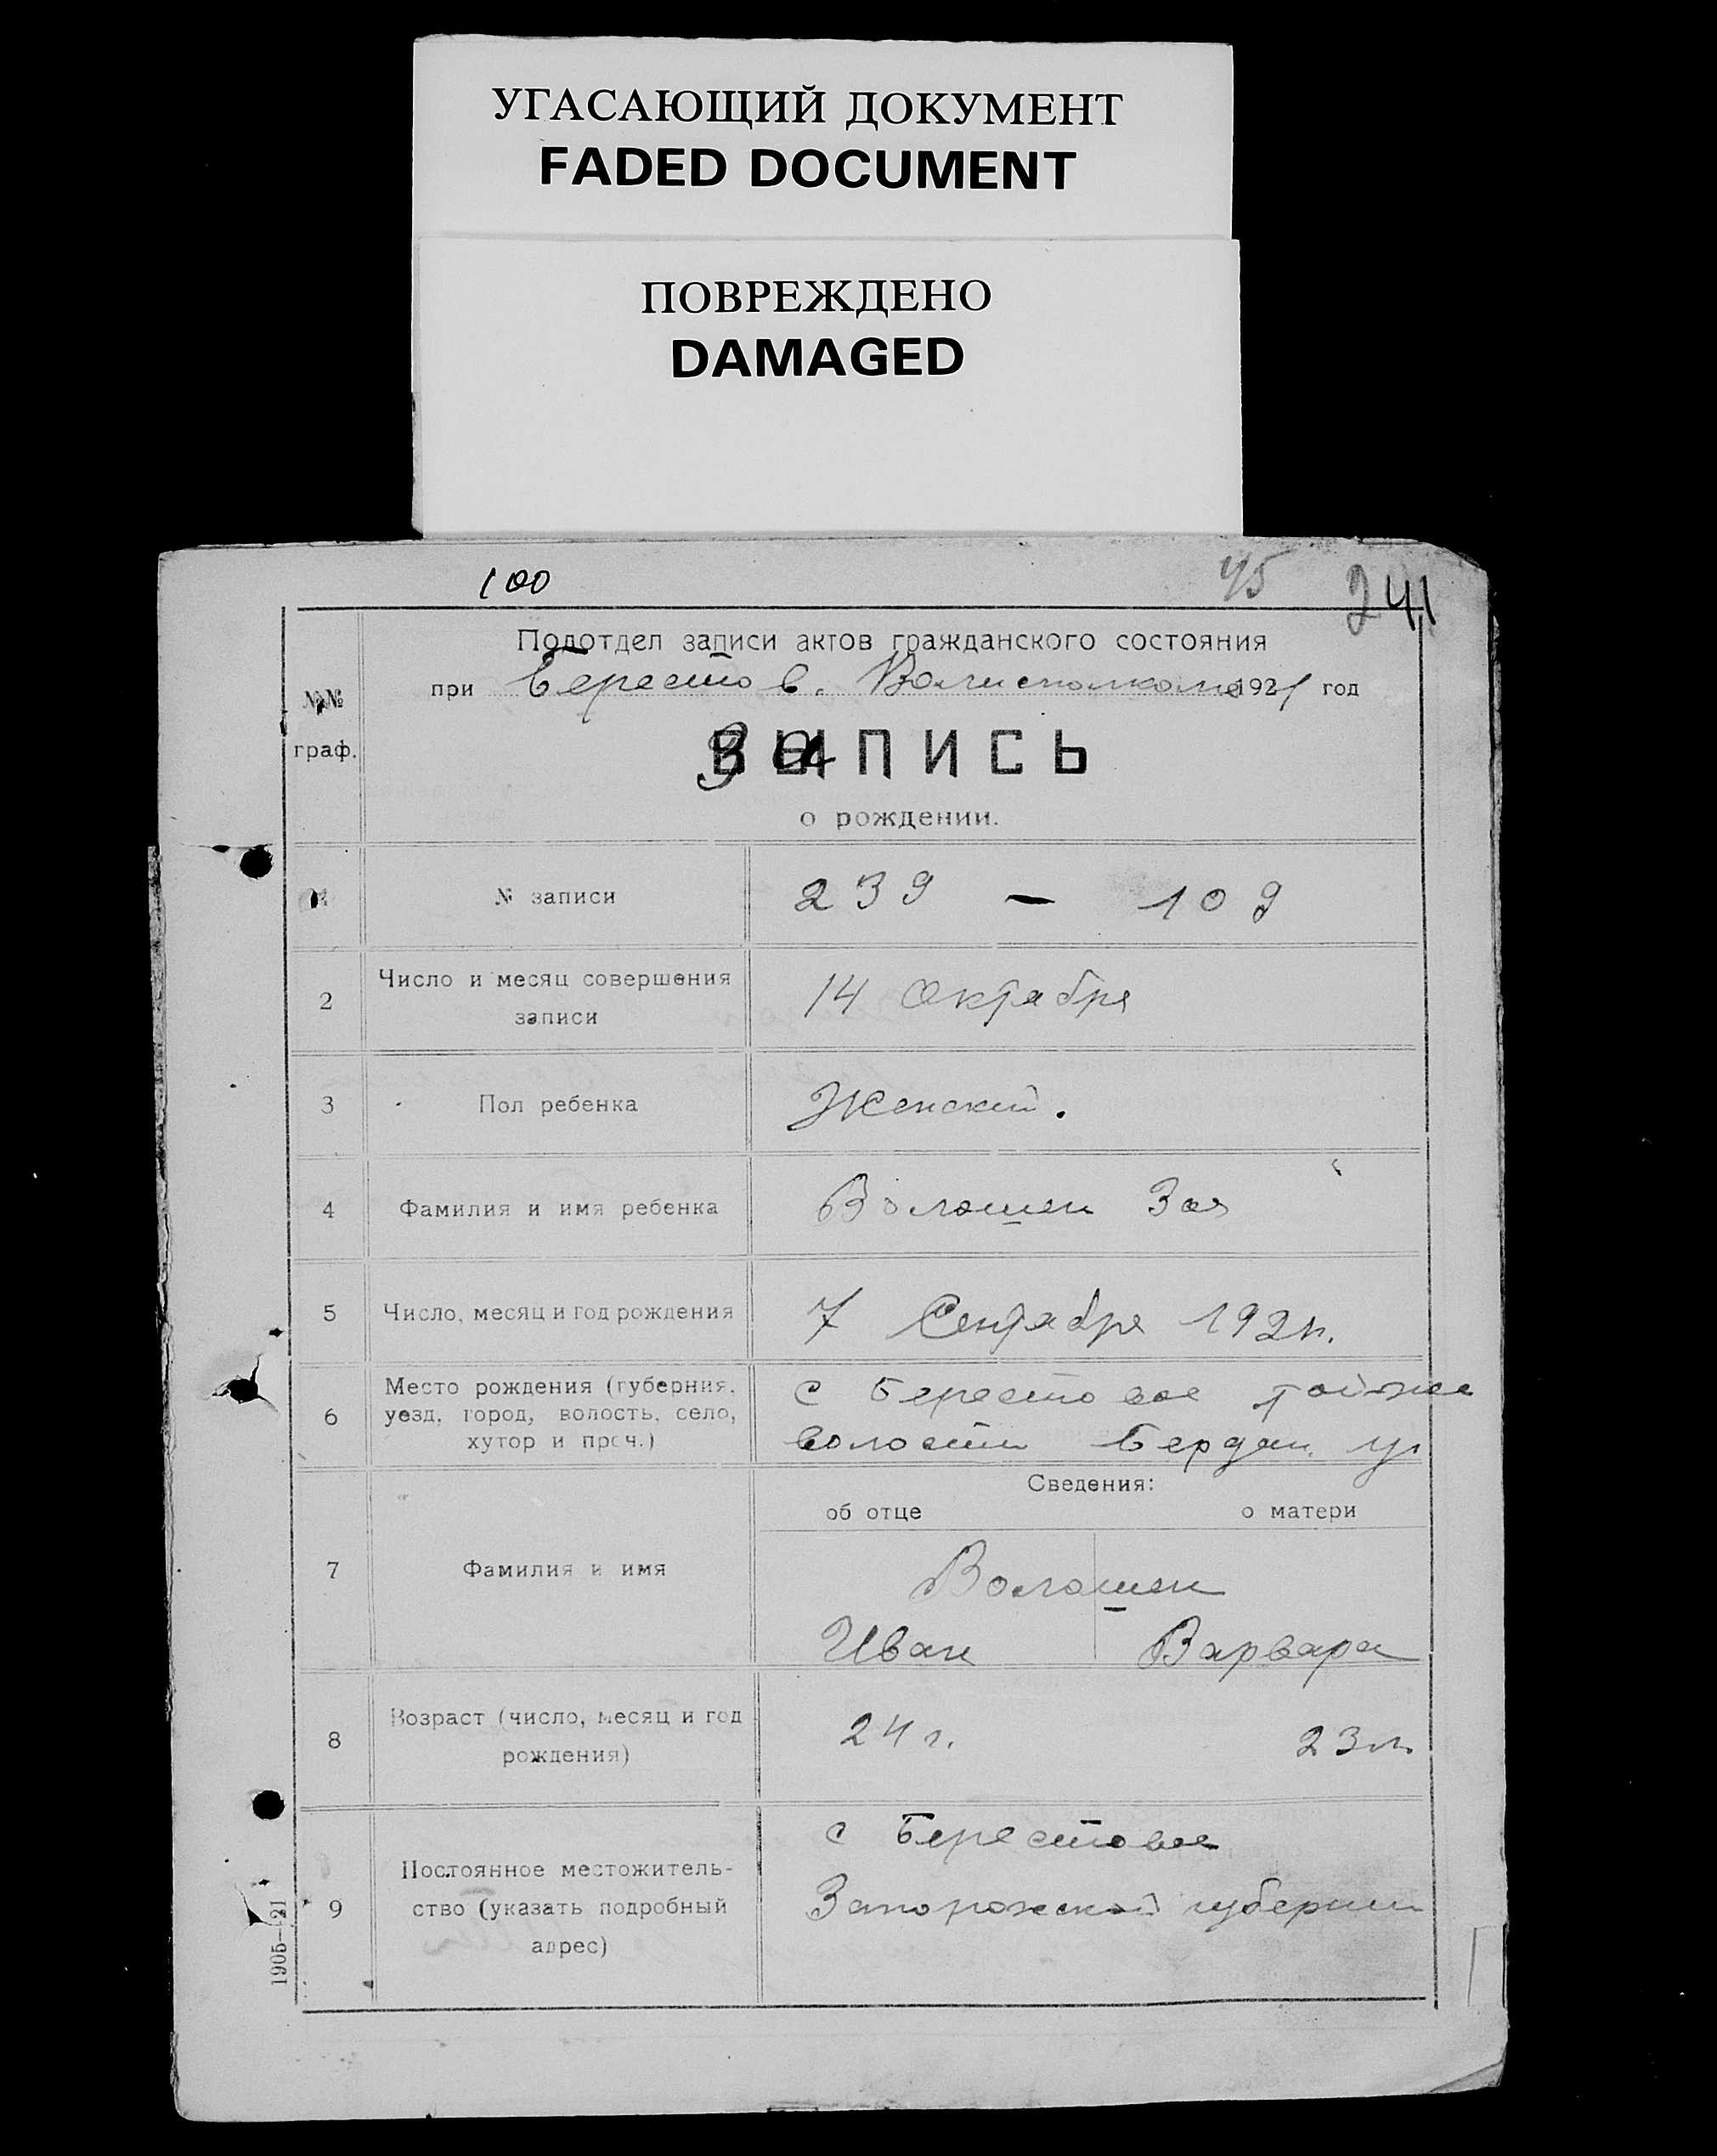 УГАСАЮЩИЙ ДОКУМЕНТ
FADED DOCUMENT
ПОВРЕЖДЕНО
DAMAGED
100
45
241
Подотдел записи актов гражданского состояния
при Берестов. Волисполкоме 1921 год
№№
граф.
ЗаПИСЬ
о рождении.
1 № записи 239 — 109
2 Число и месяц совершения
записи
14 Октября
3 Пол ребенка Женский.
4 Фамилия и имя ребенка Волошен Зоя
5 Число, месяц и год рождения 7 Сентября 1921г.
6 Место рождения (губерния,
уезд, город, волость, село,
хутор и проч.)
с Берестовое тойже
волости Бердян. у.
Сведения:
об отце о матери
7 Фамилия и имя
Волошен
Иван Варвара
8 Возраст (число, месяц и год
рождения)
24 г. 23 л.
9 Постоянное местожитель-
ство (указать подробный
адрес)
с Берестовое
Запорожской губернии
1905—21